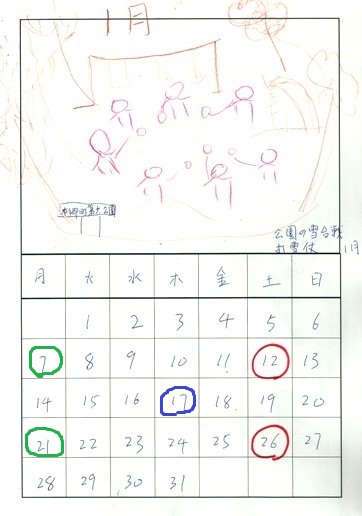 1月
公園の雪合戦
打雪仗
1月
月 火 水 木 金 土 日
1 2 3 4 5 6
7 8 9 10 11 12 13
14 15 16 17 18 19 20
21 22 23 24 25 26 27
28 29 30 31